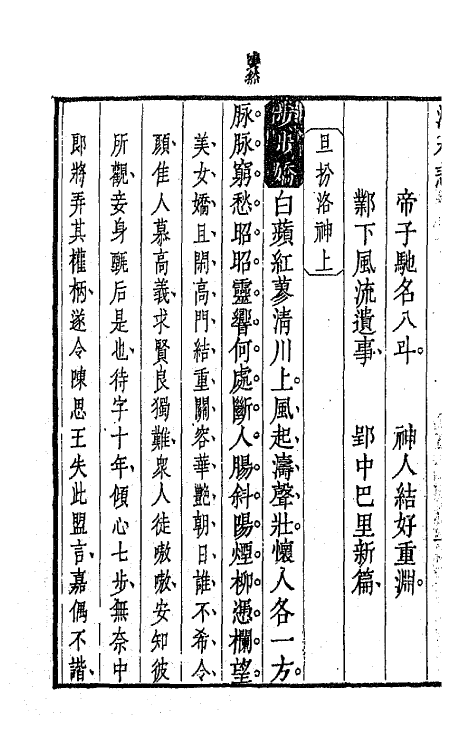 帝子馳名八斗。　神人結好重淵。
鄴下風流遺事、　郢中巴里新篇、
旦扮洛神上
白蘋紅蓼清川上。風起濤聲壯。懷人各一方。
脉脉窮愁。昭昭靈響。何處斷人腸。斜陽煙柳。憑欄望。
美女嬌且閑、高門結重關、容華艶朝日、誰不希令
顔、佳人慕高義、求賢良獨難、衆人徒嗷嗷、安知彼
所觀、妾身甄后是也、待字十年、傾心七步、無奈中
郎將弄其權柄、遂令陳思王失此盟言、嘉偶不諧、